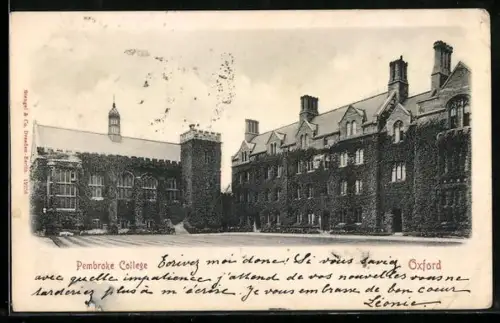 Stengel & Co., Dresden-Berlin
Pembroke College
Oxford
Ecrivez moi donc! Si vous saviez
avec quelle impatience j'attend de vos nouvelles vous ne
tarderiez plus à m'écrire. Je vous embrasse de bon cœur
Léonie